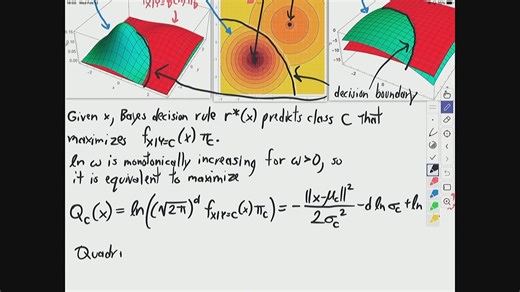 decision boundary
Given x, Bayes decision rule r*(x) predicts class C that
maximizes f_{X|Y=C}(x) π_C.
ln ω is monotonically increasing for ω>0, so
it is equivalent to maximize
Q_C(x) = ln((√2π)^d f_{X|Y=C}(x) π_C) = - ‖x-μ_C‖² / 2σ_C² - d ln σ_C + ln
Quadr